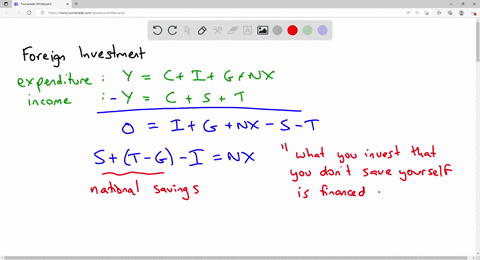 Foreign Investment
expenditure : Y = C + I + G + NX
income : - Y = C + S + T
0 = I + G + NX - S - T
S + (T - G) - I = NX
national savings
" what you invest that
you don't save yourself
is financed